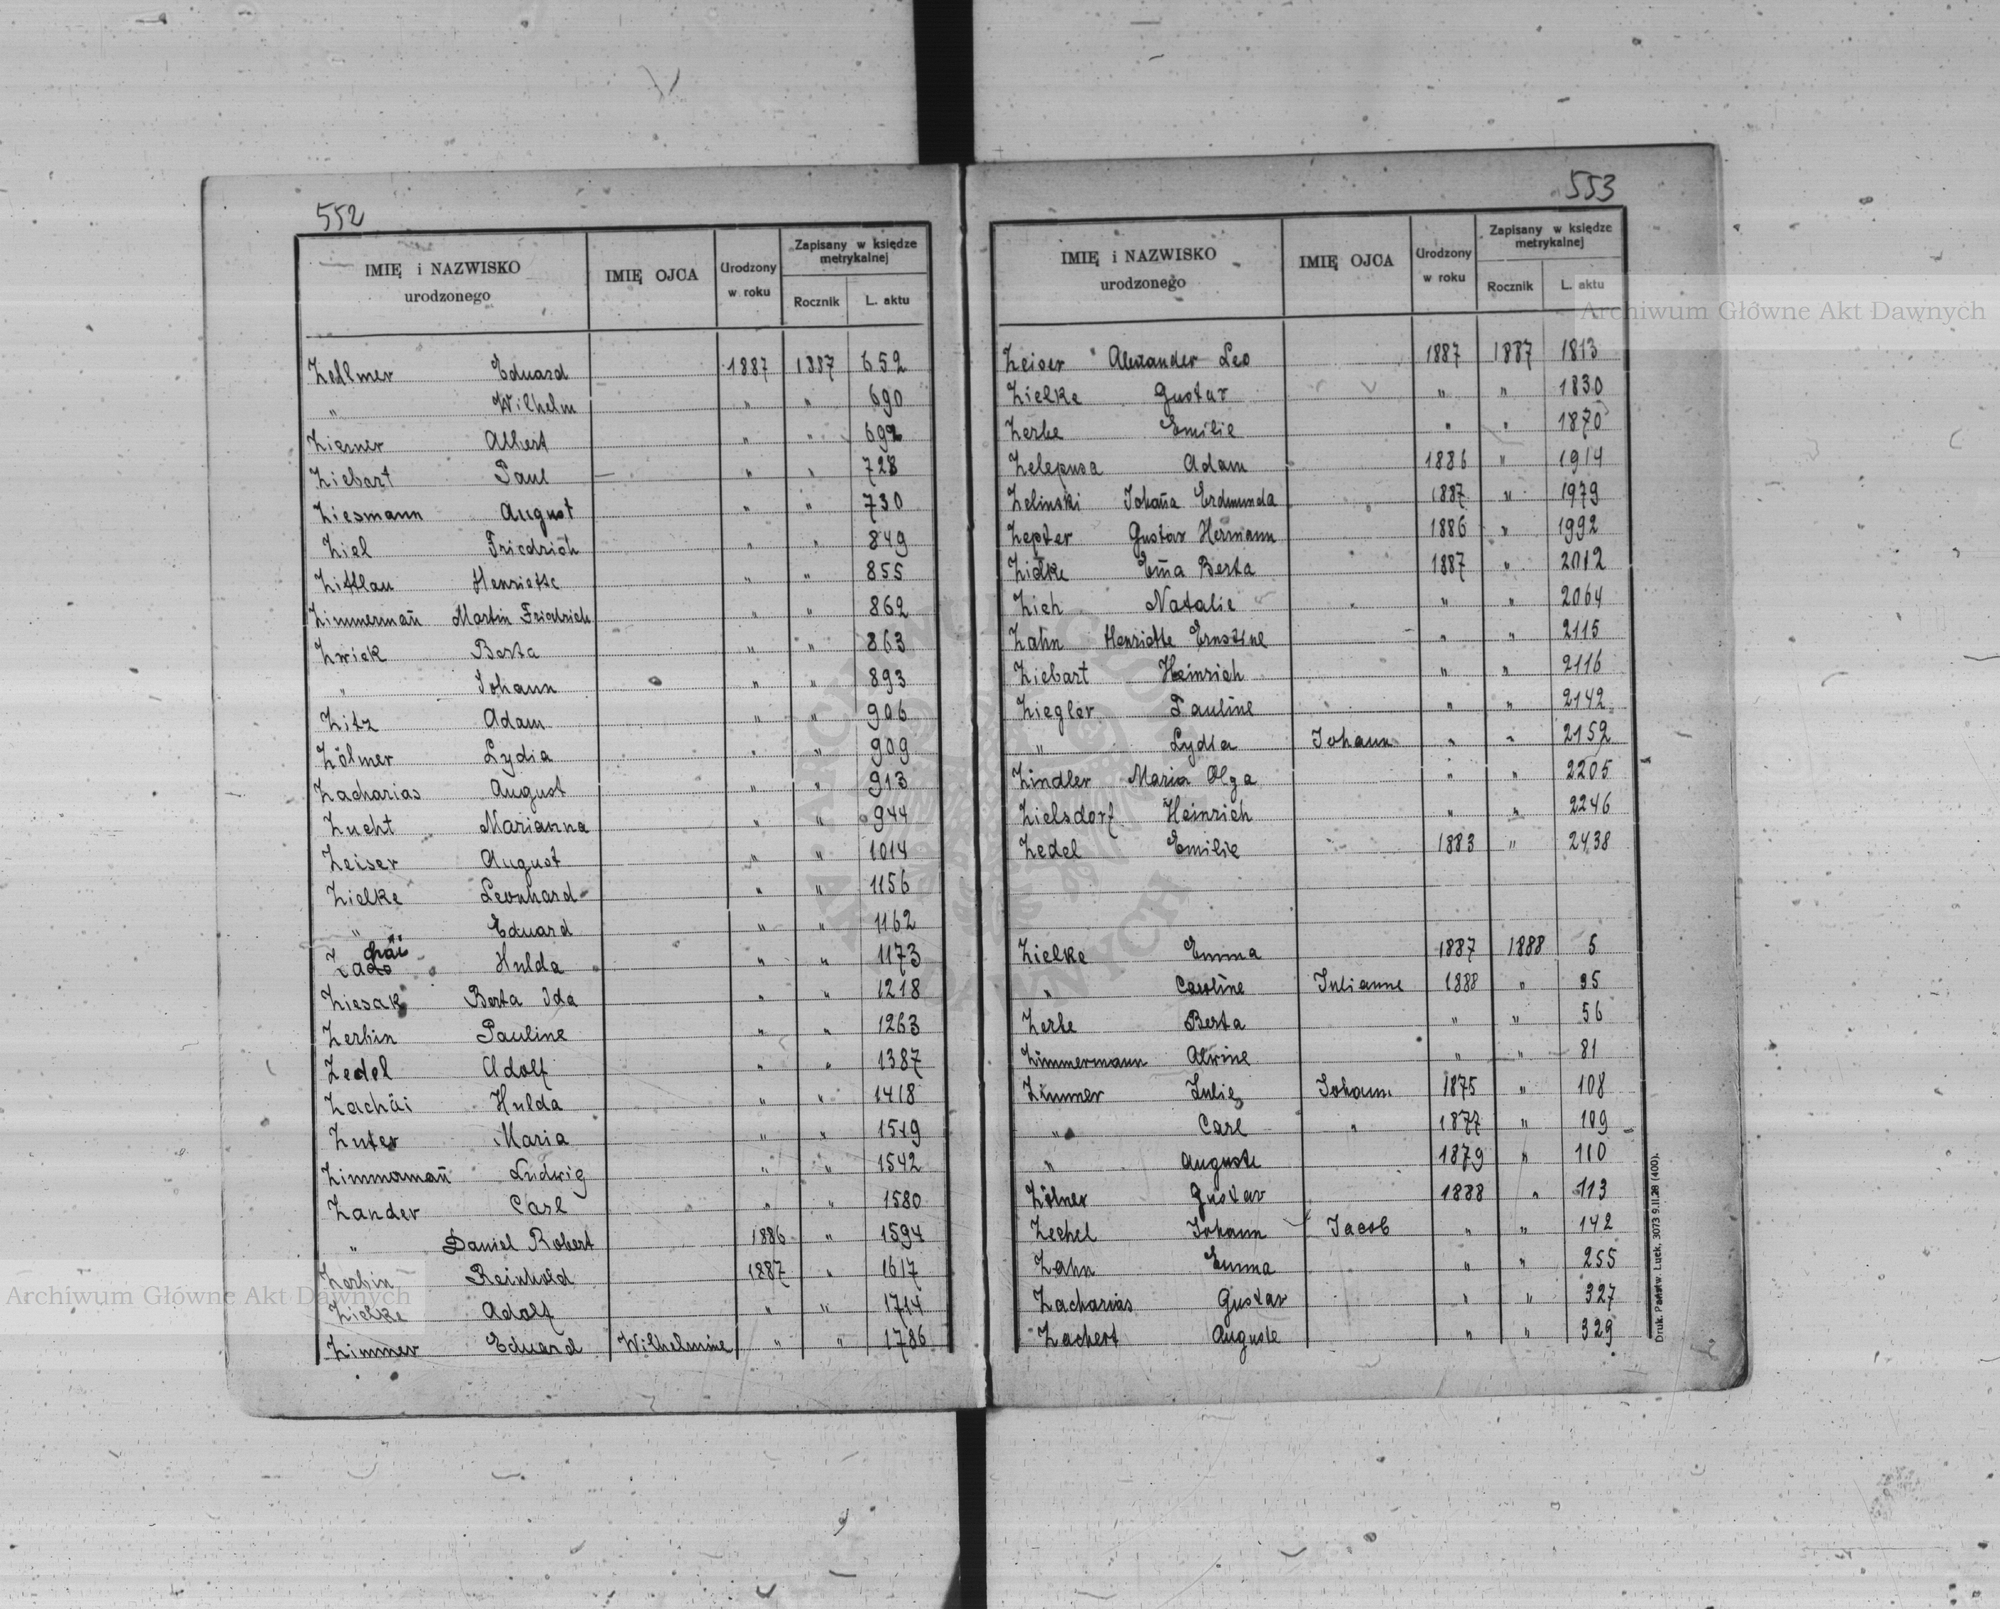 552
IMIĘ i NAZWISKO urodzonego IMIĘ OJCA Urodzony w roku Zapisany w księdze metrykalnej Rocznik L. aktu
Zellmer Eduard 1887 1887 652
" Wilhelm " " 690
Zierner Albert " " 692
Ziebart Paul " " 728
Ziesmann August " " 730
Ziel Friedrich " " 849
Zittlau Henriette " " 855
Zimmermañ Martin Friedrich " " 862
Zwiek Berta " " 863
" Johann " " 893
Zitz Adam " " 906
Zölmer Lydia " " 909
Zacharias August " " 913
Zucht Marianna " " 944
Zeiser August " " 1014
Zielke Leonhard " " 1156
" Eduard " " 1162
Zachäi Hulda " " 1173
Ziesak Berta Ida " " 1218
Zerbin Pauline " " 1263
Zedel Adolf " " 1387
Zachäi Hulda " " 1418
Zuter Maria " " 1519
Zimmermañ Ludwig " " 1542
Zander Carl " " 1580
" Daniel Robert 1886 " 1594
Zerbin Reinhold 1887 " 1617
Zielke Adolf " " 1714
Zimmer Eduard Wilhelmine " " 1786
553
IMIĘ i NAZWISKO urodzonego IMIĘ OJCA Urodzony w roku Zapisany w księdze metrykalnej Rocznik L. aktu
Zeiser Alexander Leo 1887 1887 1813
Zielke Gustav " " 1830
Zerbe Emilie " " 1870
Zelepusa Adam 1886 " 1914
Zelinski Johaña Erdmunda 1887 " 1979
Zepter Gustav Hermann 1886 " 1992
Zidke Em̃a Berta 1887 " 2012
Zich Natalie " " 2064
Zahn Henriette Ernstine " " 2115
Ziebart Heinrich " " 2116
Ziegler Pauline " " 2142
" Lydia Johann " " 2152
Zindler Maria Olga " " 2205
Zielsdorf Heinrich " " 2246
Zedel Emilie 1883 " 2438
Zielke Emma 1887 1888 5
" Caroline Julianne 1888 " 35
Zerbe Berta " " 56
Zimmermann Alwine " " 81
Zimmer Julie Johann 1875 " 108
" Carl " 1877 " 109
" Auguste 1879 " 110
Zölner Gustav 1888 " 113
Zechel Johann Jacob " " 142
Zahn Emma " " 255
Zacharias Gustav " " 327
Zachert Auguste " " 329
Druk. Państw. Łuck, 3073 9.II.28 (400).
Archiwum Główne Akt Dawnych
Archiwum Główne Akt Dawnych